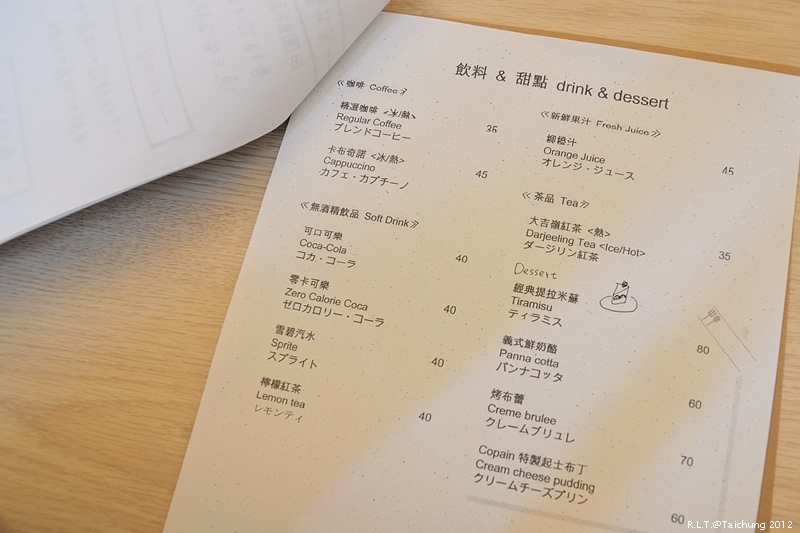 飲料 & 甜點 drink & dessert
≪咖啡 Coffee≫
精選咖啡 <冰/熱>
Regular Coffee 35
ブレンドコーヒー
卡布奇諾 <冰/熱>
Cappuccino 45
カフェ・カプチーノ
≪無酒精飲品 Soft Drink≫
可口可樂
Coca-Cola 40
コカ・コーラ
零卡可樂
Zero Calorie Coca 40
ゼロカロリー・コーラ
雪碧汽水
Sprite 40
スプライト
檸檬紅茶
Lemon tea 40
レモンティ
≪新鮮果汁 Fresh Juice≫
柳橙汁
Orange Juice 45
オレンジ・ジュース
≪茶品 Tea≫
大吉嶺紅茶 <熱>
Darjeeling Tea <Ice/Hot> 35
ダージリン紅茶
Dessert
經典提拉米蘇
Tiramisu 80
ティラミス
義式鮮奶酪
Panna cotta 60
パンナコッタ
烤布蕾
Creme brulee 70
クレームブリュレ
Copain 特製起士布丁
Cream cheese pudding 60
クリームチーズプリン
R.L.T.@Taichung 2012